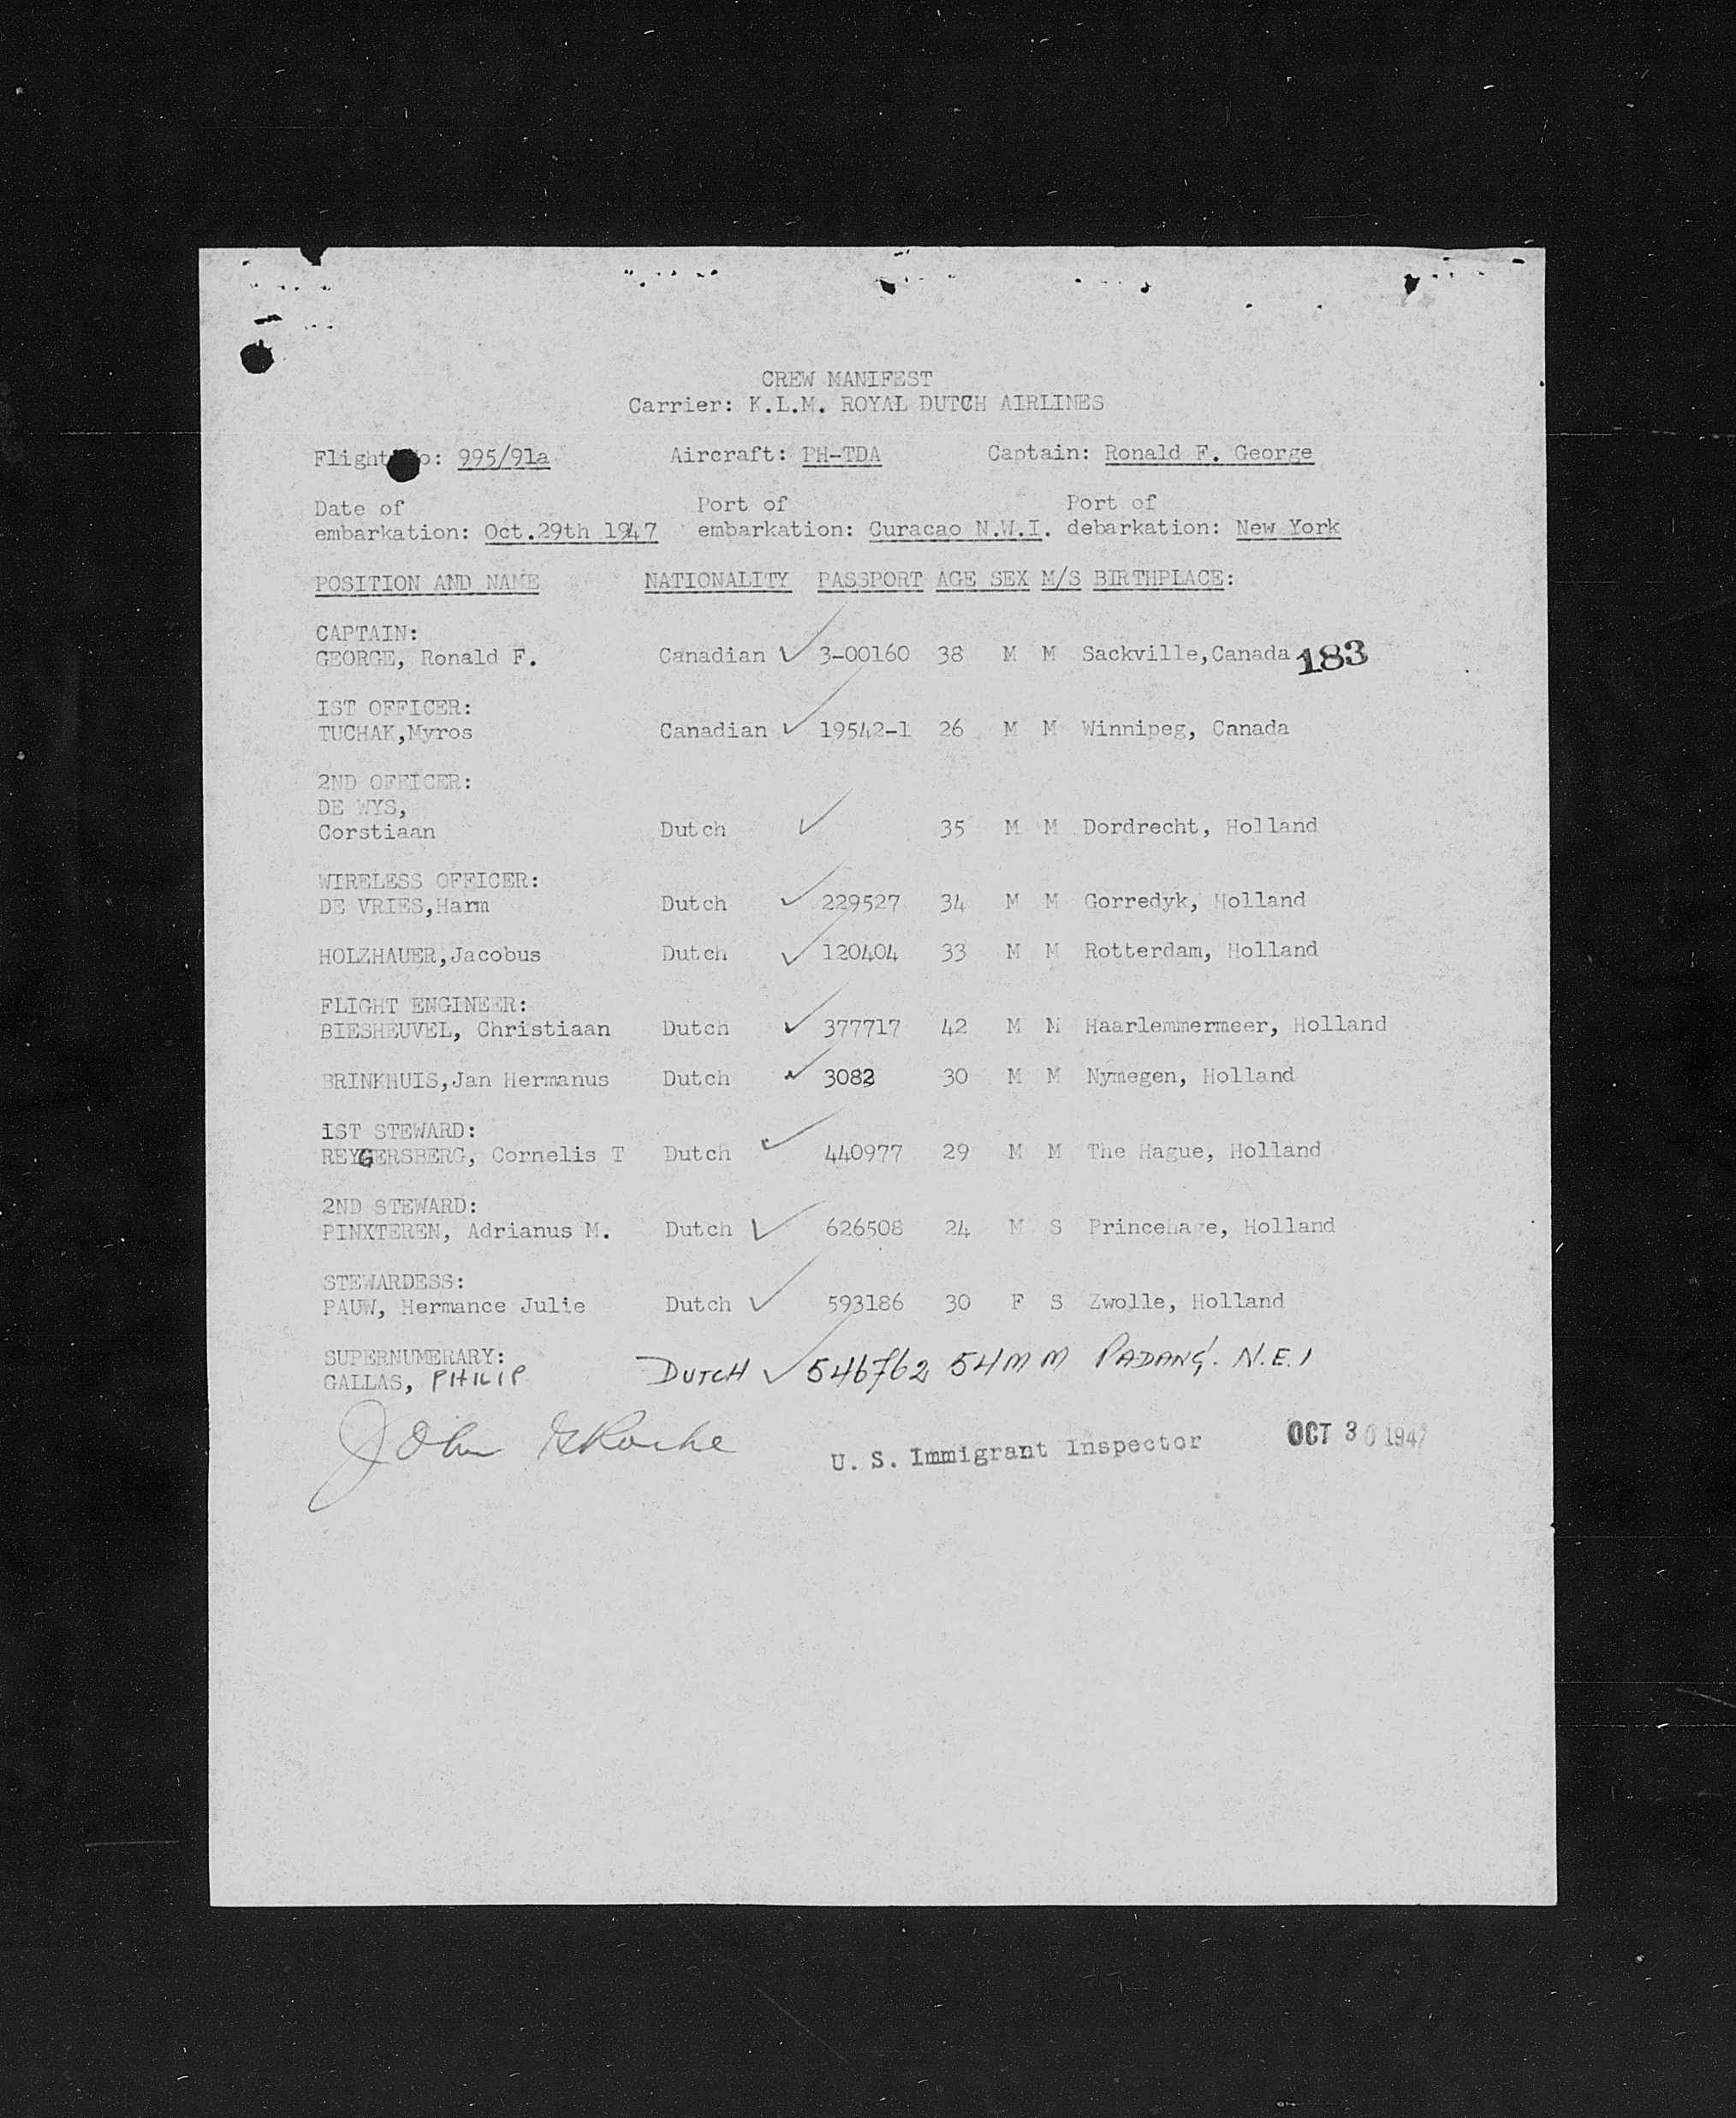 CREW MANIFEST
Carrier: K.L.M. ROYAL DUTCH AIRLINES
Flight No: 995/91a Aircraft: PH-TDA Captain: Ronald F. George
Date of Port of Port of
embarkation: Oct.29th 1947 embarkation: Curacao N.W.I. debarkation: New York
POSITION AND NAME NATIONALITY PASSPORT AGE SEX M/S BIRTHPLACE:
CAPTAIN:
GEORGE, Ronald F. Canadian ✓ 3-00160 38 M M Sackville,Canada 183
IST OFFICER:
TUCHAK,Myros Canadian ✓ 19542-1 26 M M Winnipeg, Canada
2ND OFFICER:
DE WYS,
Corstiaan Dutch ✓ 35 M M Dordrecht, Holland
WIRELESS OFFICER:
DE VRIES,Harm Dutch ✓ 229527 34 M M Gorredyk, Holland
HOLZHAUER,Jacobus Dutch ✓ 120404 33 M M Rotterdam, Holland
FLIGHT ENGINEER:
BIESHEUVEL, Christiaan Dutch ✓ 377717 42 M M Haarlemmermeer, Holland
BRINKHUIS,Jan Hermanus Dutch ✓ 3082 30 M M Nymegen, Holland
1ST STEWARD:
REYGERSBERG, Cornelis T Dutch ✓ 440977 29 M M The Hague, Holland
2ND STEWARD:
PINXTEREN, Adrianus M. Dutch ✓ 626508 24 M S Princehage, Holland
STEWARDESS:
PAUW, Hermance Julie Dutch ✓ 593186 30 F S Zwolle, Holland
SUPERNUMERARY:
GALLAS, PHILIP DUTCH ✓ 546762 54 M M PADANG. N.E.I
John U. S. Immigrant Inspector OCT 30 1947